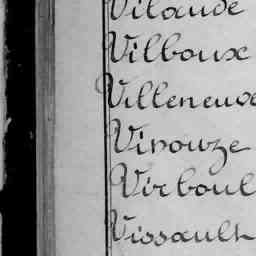 Vilaude
Villboux
Villeneuve
Virouze
Virboul
Vissault